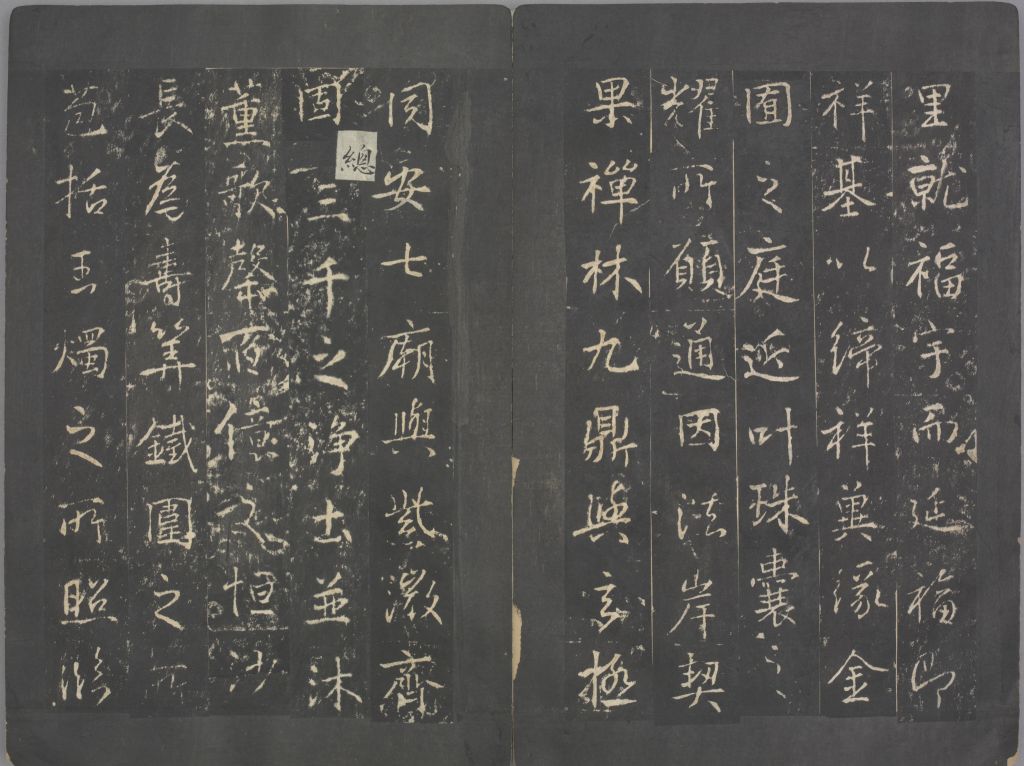 里就福宇而延福即
祥基以締祥冀緣金
囿之庭近叶珠囊之
耀所願通因法岸契
果禪林九鼎與玄極
同安七廟與紫微齊
固三千之淨土並沐
總
薰歌罄百億之恒沙
長為壽筭鐵圍之所
苞括玉燭之所照臨